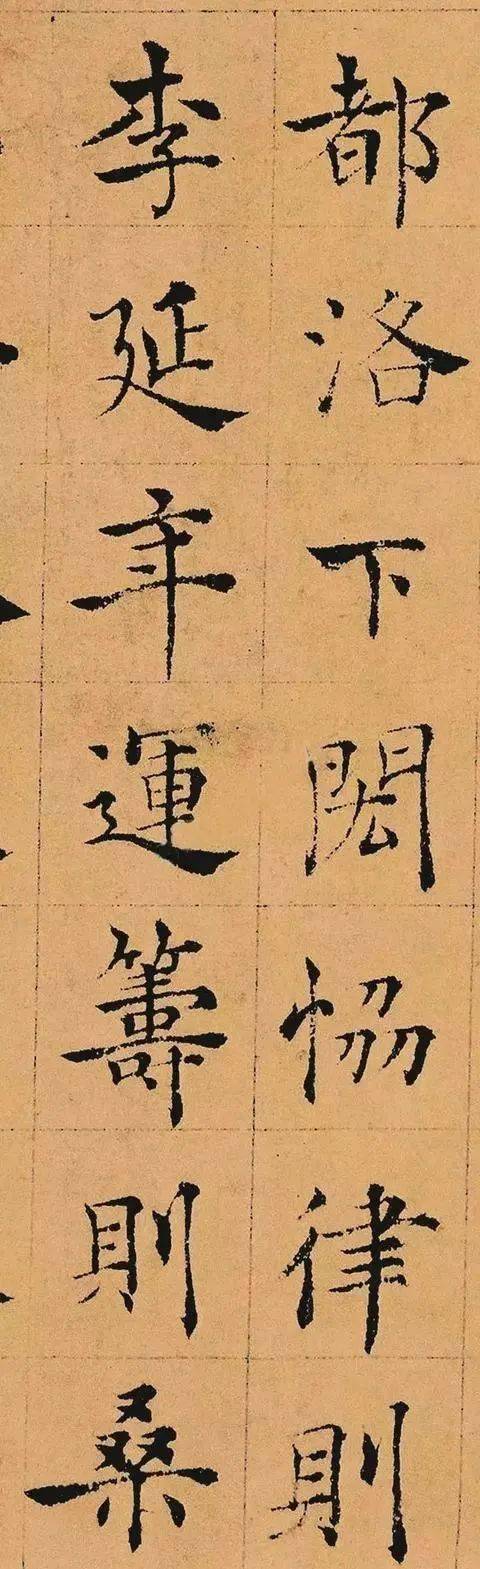 都洛下閎恊律則
李延年運籌則桑